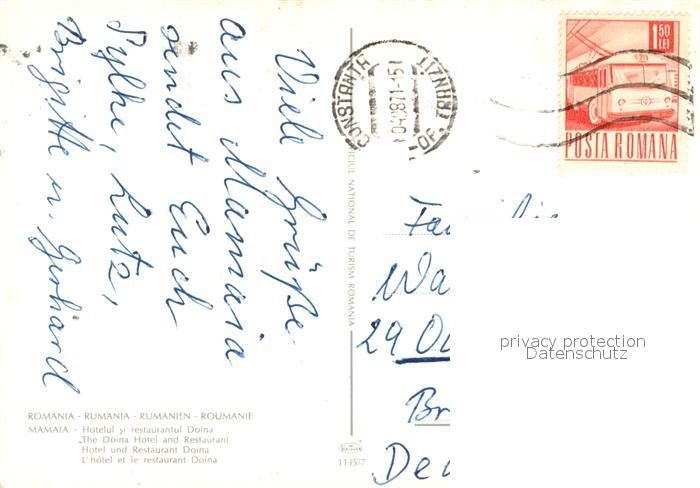 Viele Grüße
aus Mamaia
sendet Euch
Sylke, Lutz,
Brigitte u. Gerhard
ROMANIA - RUMANIA - RUMÄNIEN - ROUMANIE
MAMAIA - Hotelul și restaurantul Doina
The Doina Hotel and Restaurant
Hotel und Restaurant Doina
L'hôtel et le restaurant Doina
OFICIUL NATIONAL DE TURISM ROMANIA
1135/7
CONSTANTA
OF. TRANZIT
1,50
LEI
POSTA ROMANA
Fa
Wa
29 O
Br
De
privacy protection
Datenschutz